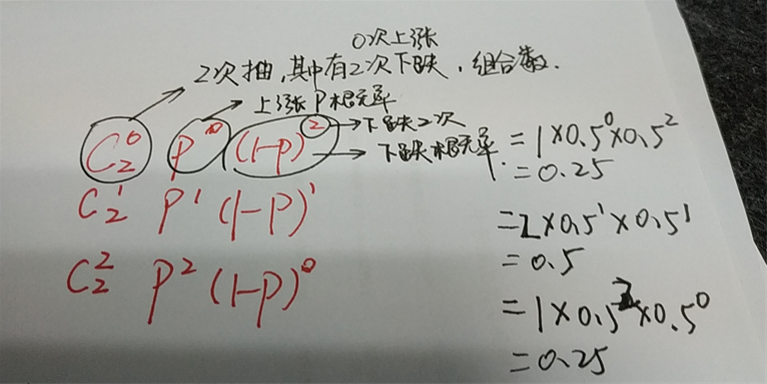 0次上涨
2次抽,其中有2次下跌,组合数.
上涨P概率
C₂⁰ P⁰ (1-P)² 下跌2次
下跌概率.
= 1×0.5⁰×0.5²
= 0.25
C₂¹ P¹ (1-P)¹
= 2×0.5¹×0.5¹
= 0.5
C₂² P² (1-P)⁰
= 1×0.5²×0.5⁰
= 0.25